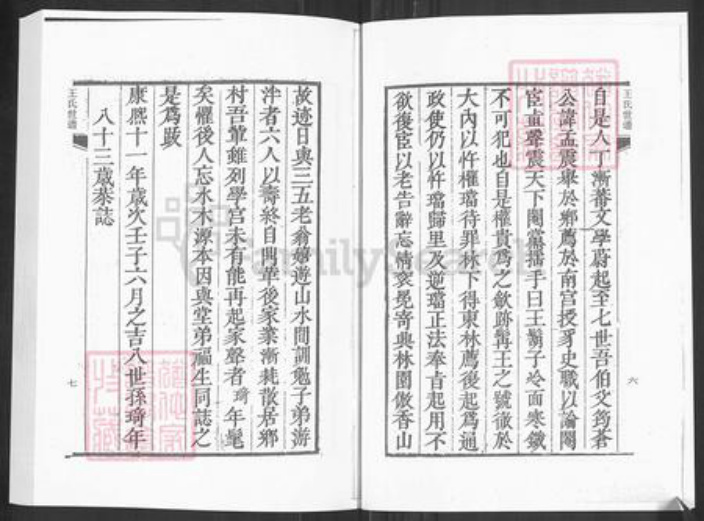 王氏世譜
自是人丁漸蕃文學蔚起至七世吾伯父筠蒼
公諱孟震舉於鄉薦於南宮授豸史職以論閹
宦直聲震天下閹黨搖手曰王鬍子冷面寒鐵
不可犯也自是權貴為之斂跡髯王之號徹於
大內以忤權璫待罪林下得東林薦後起為通
政使仍以忤璫歸里及逆璫正法奉旨起用不
欲復宦以老告辭忘情袞冕寄興林園倣香山
六
故迹日與三五老翁嬉遊山水間訓勉子弟游
泮者六人以壽終自開華後家業漸耗散居鄉
村吾輩雖列學宮未有能再起家聲者琦年髦
矣懼後人忘水木源本因與堂弟福生同誌之
是為跋
康熙十一年歲次壬子六月之吉八世孫琦年
八十三歲恭誌
王氏世譜
七
FamilySearch